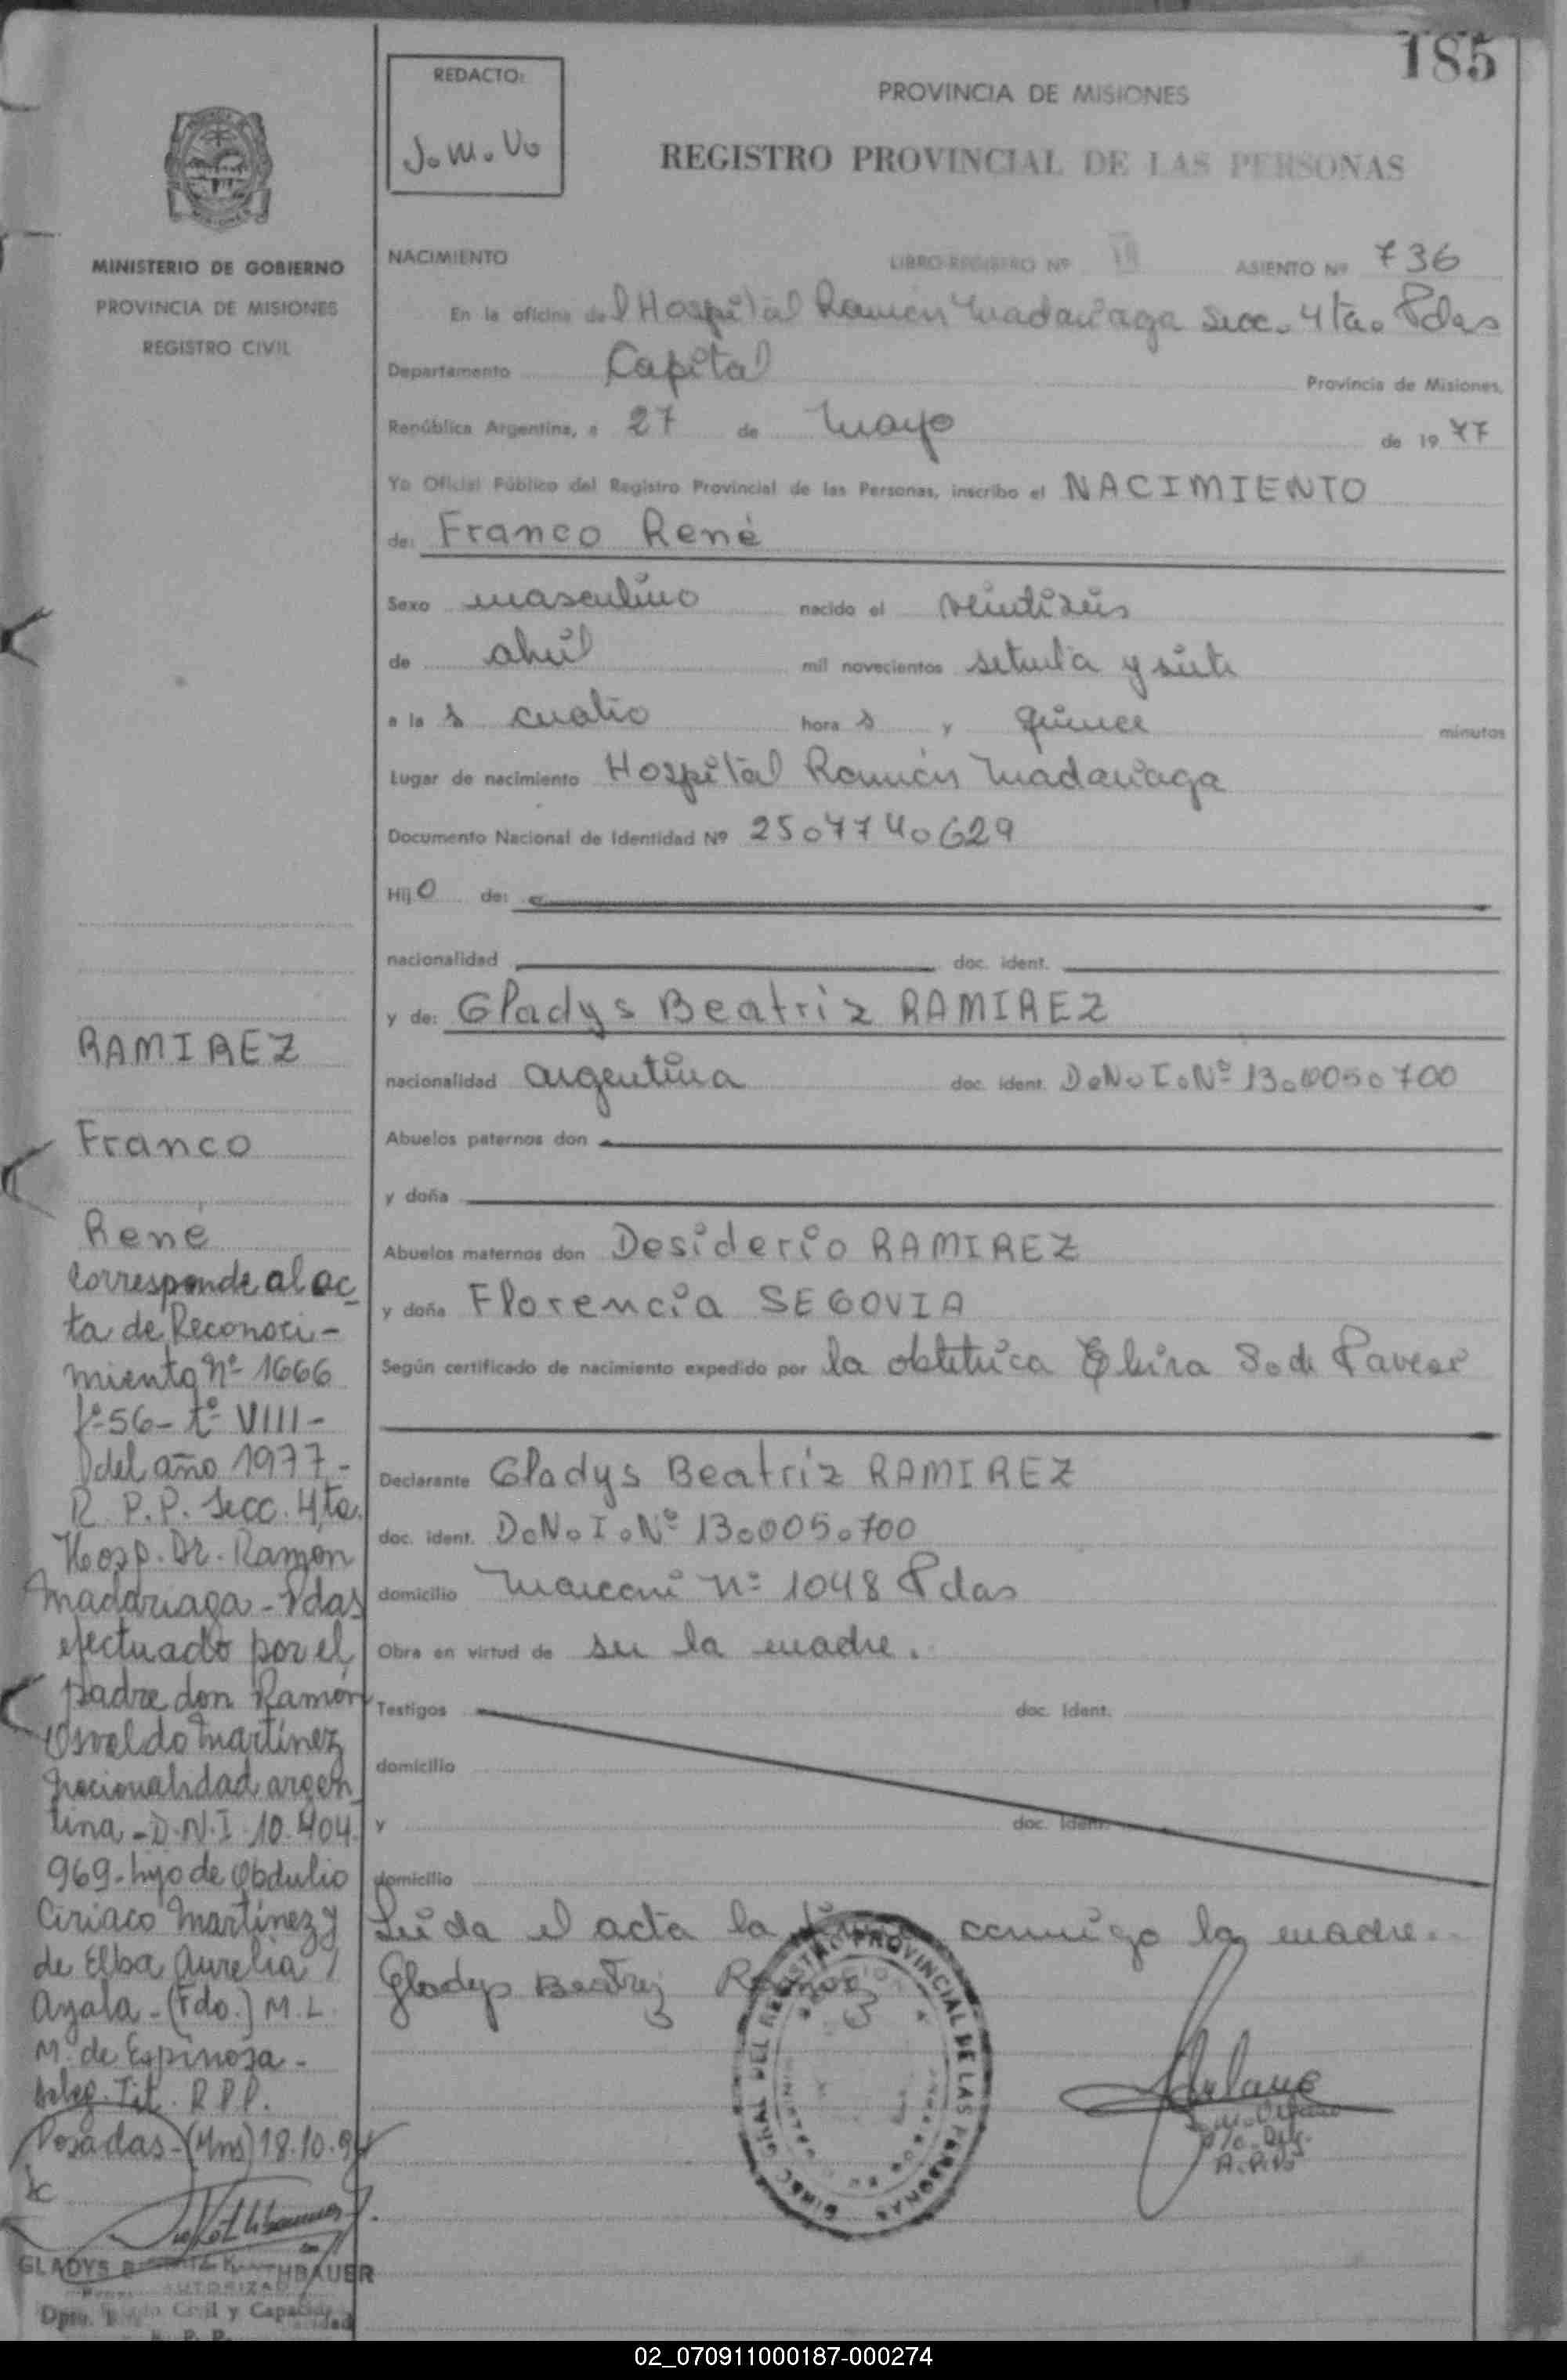 185
REDACTO:
J. M. V.
PROVINCIA DE MISIONES
REGISTRO PROVINCIAL DE LAS PERSONAS
MINISTERIO DE GOBIERNO
PROVINCIA DE MISIONES
REGISTRO CIVIL
NACIMIENTO LIBRO REGISTRO Nº III ASIENTO Nº 736
En la oficina del Hospital Ramón Madariaga Secc. 4ta. Pdas
Departamento Capital Provincia de Misiones,
República Argentina, a 27 de Mayo de 1977
Yo Oficial Público del Registro Provincial de las Personas, inscribo el NACIMIENTO
de: Franco René
Sexo masculino nacido el veintiseis
de abril mil novecientos setenta y siete
a las cuatro horas y quince minutos
Lugar de nacimiento Hospital Ramón Madariaga
Documento Nacional de Identidad Nº 25.774.629
Hijo de:
nacionalidad doc. ident.
y de: Gladys Beatriz RAMIREZ
nacionalidad argentina doc. ident. D.N.I.Nº 13.005.700
Abuelos paternos don
y doña
Abuelos maternos don Desiderio RAMIREZ
y doña Florencia SEGOVIA
Según certificado de nacimiento expedido por la obstetrica Elvira S. de
Declarante Gladys Beatriz RAMIREZ
doc. ident. D.N.I.Nº 13.005.700
domicilio Marconi Nº 1048 Pdas
Obra en virtud de ser la madre.
Testigos doc. Ident.
domicilio
y doc. Ident.
domicilio
Leida el acta la firma conmigo la madre.
Gladys Beatriz Ramirez
DIREC. GRAL. DEL REGISTRO PROVINCIAL DE LAS PERSONAS
RAMIREZ
Franco
René
Corresponde al ac
ta de Reconoci-
miento nº 1666
fº 56- tº VIII-
del año 1977-
R. P. P. Secc. 4ta.
Hosp. Dr. Ramón
Madariaga - Pdas
efectuado por el
padre don Ramón
Osvaldo Martínez
nacionalidad argen
tina - D.N.I. 10.404.
969- hijo de Obdulio
Ciriaco Martínez y
de Elba Aurelia
Ayala - (Fdo.) M. L.
M. de Espinosa -
Deleg. Tit. R.P.P.
Posadas - (Mns) 18.10.94
GLADYS HBAUER
AUTORIZAD
Dpto. Civil y Capacidad
R. P. P.
02_070911000187-000274